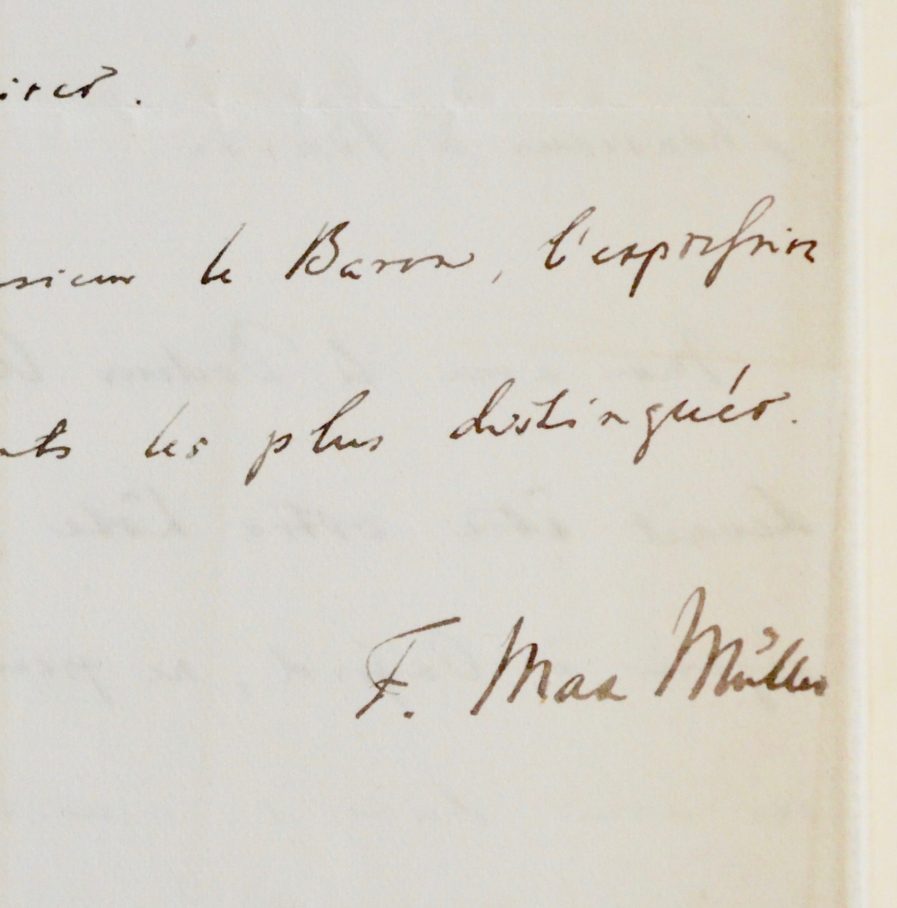 ires.
sieur le Baron, l'expression
nts les plus distingués.
F. Max Müller